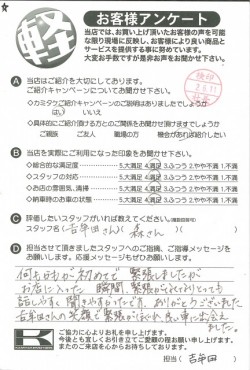 軽
お客様アンケート
当店では、お買い上げ頂いたお客様の声を可能
な限り現場に反映し、お客様により良い商品と
サービスを提供する事に努めています。
大変お手数ですが是非お声をお聞かせ下さい。
A 当店はご紹介を大切にしております。
ご紹介キャンペーンについてお聞かせ下さい。
◇カミタケご紹介キャンペーンのご説明はありましたでしょうか
はい いいえ
◇具体的にご紹介頂ける方とのご関係をお聞かせ頂けますでしょうか
ご親族 ご友人 職場の方 機会があれば紹介したい
B 当店を実際にご利用になった印象をお聞かせ下さい。
◇総合的な満足度 5.大満足 4.満足 3.ふつう 2.やや不満 1.不満
◇スタッフの対応 5.大満足 4.満足 3.ふつう 2.やや不満 1.不満
◇お店の雰囲気、清掃 5.大満足 4.満足 3.ふつう 2.やや不満 1.不満
◇納車時のお車の状態 5.大満足 4.満足 3.ふつう 2.やや不満 1.不満
C 評価したいスタッフがいれば教えてください。(複数回答可)
スタッフ名(吉年田さん)(森さん)
D 担当させて頂きましたスタッフへのご指摘、ご指導メッセージをお
願いします。応援メッセージもぜひお願いします。
何もかもが初めてで緊張しましたが
お店に入った瞬間、緊張がほぐれとっても
話しやすく聞きやすかったです。ありがとうございました
の笑顔で緊張がほぐれ、良い車に出会え
ました。
ご協力に心よりお礼を申し上げます。
今後とも宜しくお引き立てご愛顧の程お願い申し上げます。
またのご来店を心からお待ちしております。
担当( )